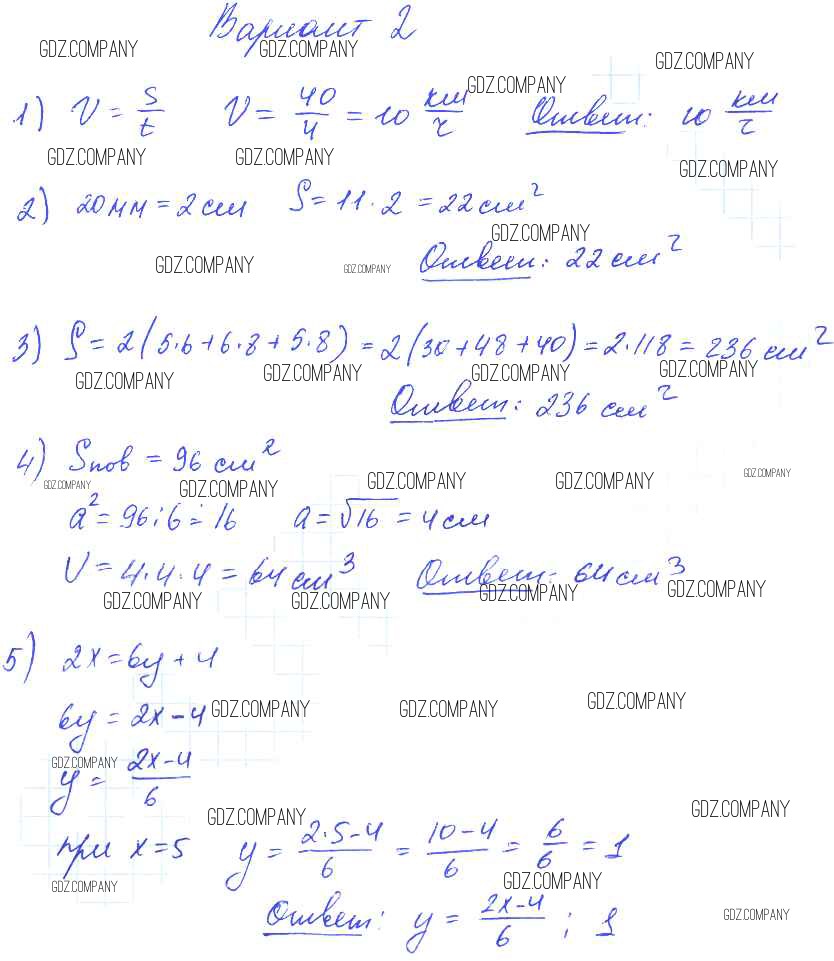 Вариант 2
GDZ.COMPANY GDZ.COMPANY GDZ.COMPANY
GDZ.COMPANY
1) V = s/t V = 40/4 = 10 км/ч Ответ: 10 км/ч
GDZ.COMPANY GDZ.COMPANY GDZ.COMPANY
2) 20мм = 2см S = 11 · 2 = 22 см²
GDZ.COMPANY
Ответ: 22 см²
GDZ.COMPANY GDZ.COMPANY
3) S = 2(5·6+6·8+5·8) = 2(30+48+40) = 2·118 = 236 см²
GDZ.COMPANY GDZ.COMPANY GDZ.COMPANY GDZ.COMPANY
Ответ: 236 см²
4) Sпов = 96 см²
GDZ.COMPANY GDZ.COMPANY GDZ.COMPANY GDZ.COMPANY GDZ.COMPANY
a² = 96:6 = 16 a = √16 = 4см
V = 4·4·4 = 64 см³ Ответ: 64 см³
GDZ.COMPANY GDZ.COMPANY GDZ.COMPANY GDZ.COMPANY
5) 2x = 6y + 4
6y = 2x – 4
GDZ.COMPANY GDZ.COMPANY GDZ.COMPANY
GDZ.COMPANY
y = 2x-4/6
GDZ.COMPANY GDZ.COMPANY
при x = 5 y = 2·5-4/6 = 10-4/6 = 6/6 = 1
GDZ.COMPANY GDZ.COMPANY
Ответ: y = 2x-4/6 ; 1
GDZ.COMPANY